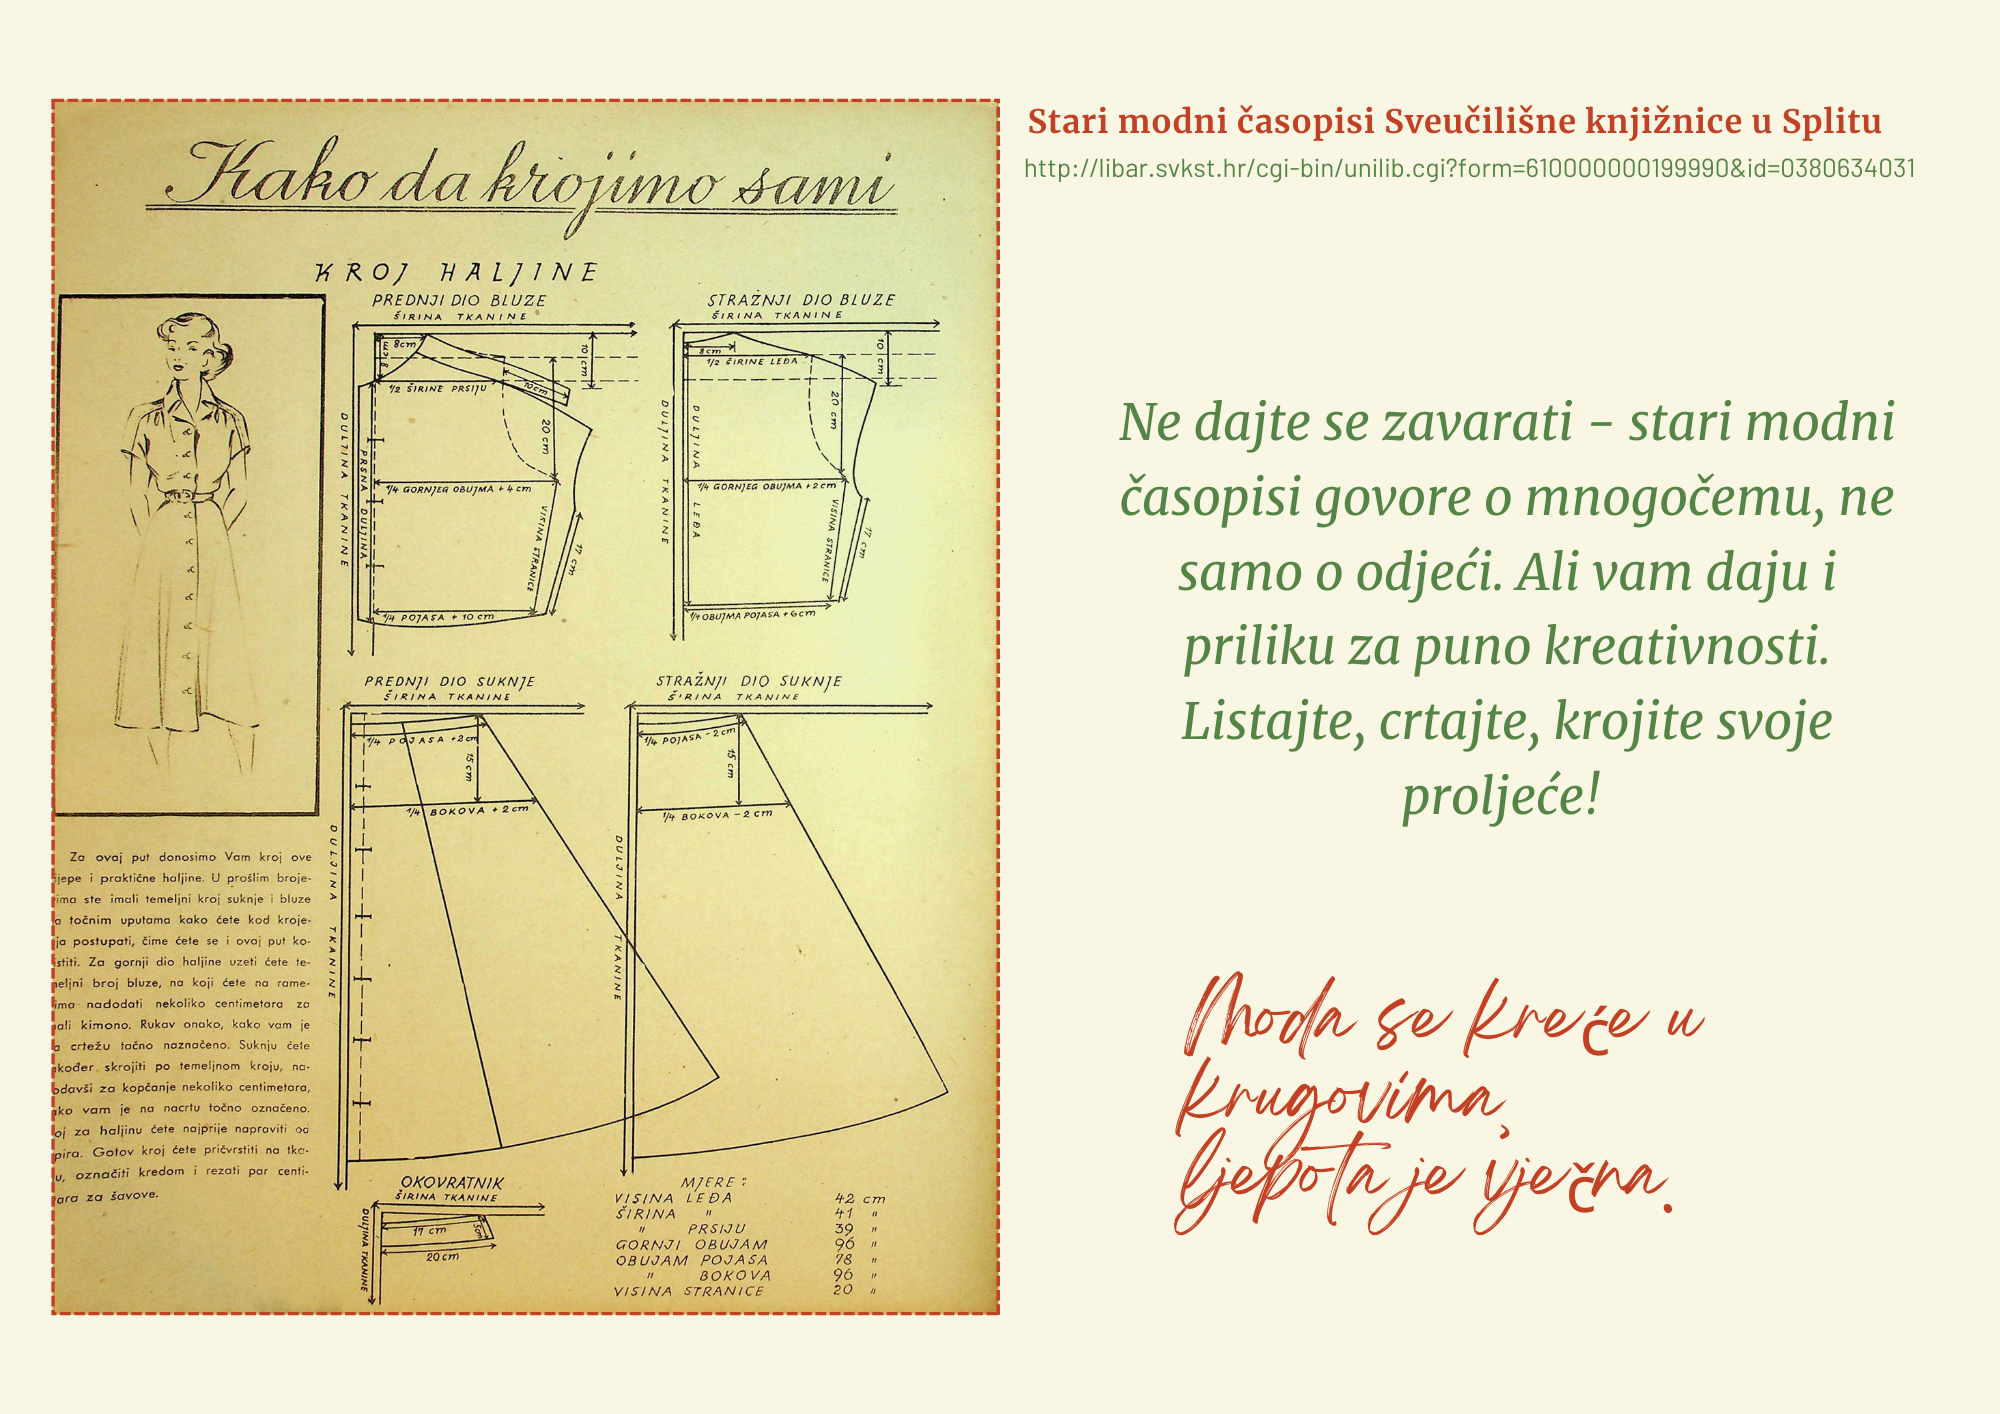 Kako da krojimo sami
KROJ HALJINE
PREDNJI DIO BLUZE
ŠIRINA TKANINE
8cm
8 cm
10 cm
½ ŠIRINE PRSIJU
10cm
20 cm
DULJINA TKANINE
PRSNA DULJINA
¼ GORNJEG OBUJMA + 4 cm
VISINA STRANICE
17 cm
¼ POJASA + 10 cm
STRAŽNJI DIO BLUZE
ŠIRINA TKANINE
8cm
10 cm
½ ŠIRINE LEĐA
20 cm
DULJINA TKANINE
DULJINA LEĐA
¼ GORNJEG OBUJMA + 2 cm
VISINA STRANICE
17 cm
¼ OBUJMA POJASA + 6 cm
PREDNJI DIO SUKNJE
ŠIRINA TKANINE
¼ POJASA + 2 cm
15 cm
¼ BOKOVA + 2 cm
DULJINA TKANINE
STRAŽNJI DIO SUKNJE
ŠIRINA TKANINE
¼ POJASA - 2 cm
15 cm
¼ BOKOVA - 2 cm
DULJINA TKANINE
Za ovaj put donosimo Vam kroj ove
ijepe i praktične haljine. U prošlim broje-
ima ste imali temeljni kroj suknje i bluze
a točnim uputama kako ćete kod kroje-
ja postupati, čime ćete se i ovaj put ko-
stiti. Za gornji dio haljine uzeti ćete te-
eljni broj bluze, na koji ćete na rame-
ima nadodati nekoliko centimetara za
ali kimono. Rukav onako, kako vam je
a crtežu tačno naznačeno. Suknju ćete
kođer skrojiti po temeljnom kroju, na-
odavši za kopčanje nekoliko centimetara,
ko vam je na nacrtu točno označeno.
oj za haljinu ćete najprije napraviti od
pira. Gotov kroj ćete pričvrstiti na tka-
u, označiti kredom i rezati par centi-
ara za šavove.
OKOVRATNIK
ŠIRINA TKANINE
DULJINA TKANINE
17 cm
5cm
20 cm
MJERE :
VISINA LEĐA 42 cm
ŠIRINA " 41 "
" PRSIJU 39 "
GORNJI OBUJAM 96 "
OBUJAM POJASA 78 "
" BOKOVA 96 "
VISINA STRANICE 20 "
Stari modni časopisi Sveučilišne knjižnice u Splitu
http://libar.svkst.hr/cgi-bin/unilib.cgi?form=610000000199990&id=0380634031
Ne dajte se zavarati - stari modni
časopisi govore o mnogočemu, ne
samo o odjeći. Ali vam daju i
priliku za puno kreativnosti.
Listajte, crtajte, krojite svoje
proljeće!
Moda se kreće u
krugovima,
ljepota je vječna.